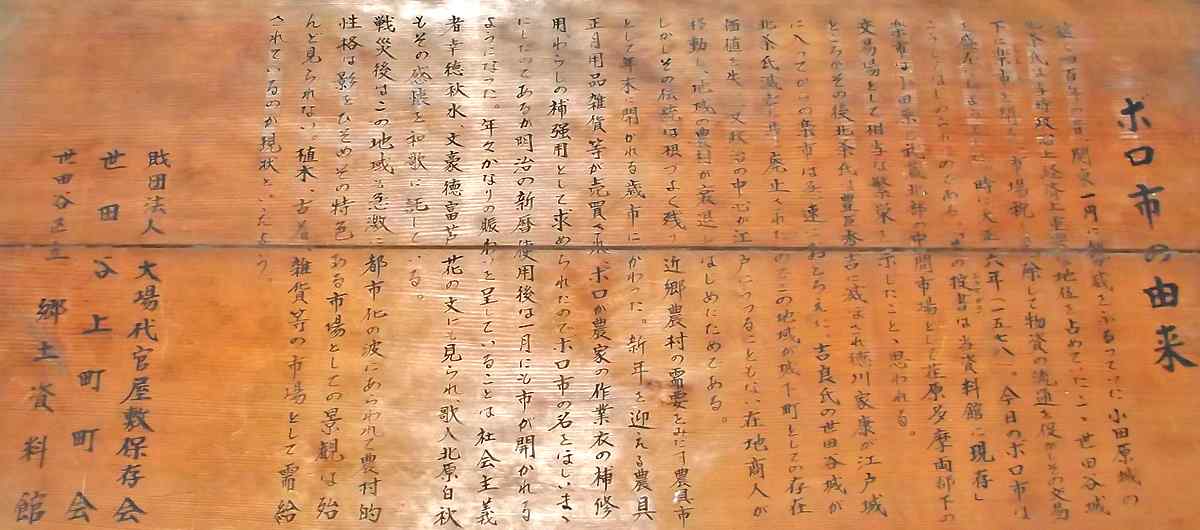 ボロ市の由来
四百年の昔 関東一円に勢威をふるっていた小田原城の
北条氏は当時政治上経済上重要な地位を占めていた 世田谷城
下に楽市を開き 市場税を免除して物資の流通を促しその交易
時 天正六年一五七八 今日のボロ市は
その掟書は当資料館に現存」
楽市は小田原 武蔵北部の中間市場として荏原多摩両郡下の
交易場として相当な繁栄を示したこと 思われる。
ところがその後北条氏は豊臣秀吉 滅ぼされ徳川家康が江戸城
に入ってからの楽市は 速におとろえ 吉良氏の世田谷城が
北条氏滅亡 廃止された のでこの地域が城下町としての存在
価値を失 又政治の中心が江戸にうつるとともに在地商人が
移動し、地域の農村が衰退しはじめたためである。
しかしその伝統は根づよく残り 近郷農村の需要をみたす農具市
として年末に開かれる歳市にかわった。新年を迎える農具
正月用品雑貨等が売買されボロが農家の作業衣の補修
用わらじの補強用として求められたのでボロ市の名をほしいまゝ
にしたのであるが明治の新暦使用後は一月にも市が開かれる
ようになった。年々かなりの賑わいを呈していることは社会主義
者幸徳秋水、文豪徳富芦花の文にも見られ歌人北原白秋
もその感懐を和歌に託している。
戦災後はこの地域も急激に都市化の波にあらわれて農村的
性格は影をひそめその特色ある市場としての景観は殆
んど見られない 植木、古着、雑貨等の市場として需給
されているのが現状といえよう。
財団法人 大場代官屋敷保存会
世田谷上町町会
世田谷区立 郷土資料館